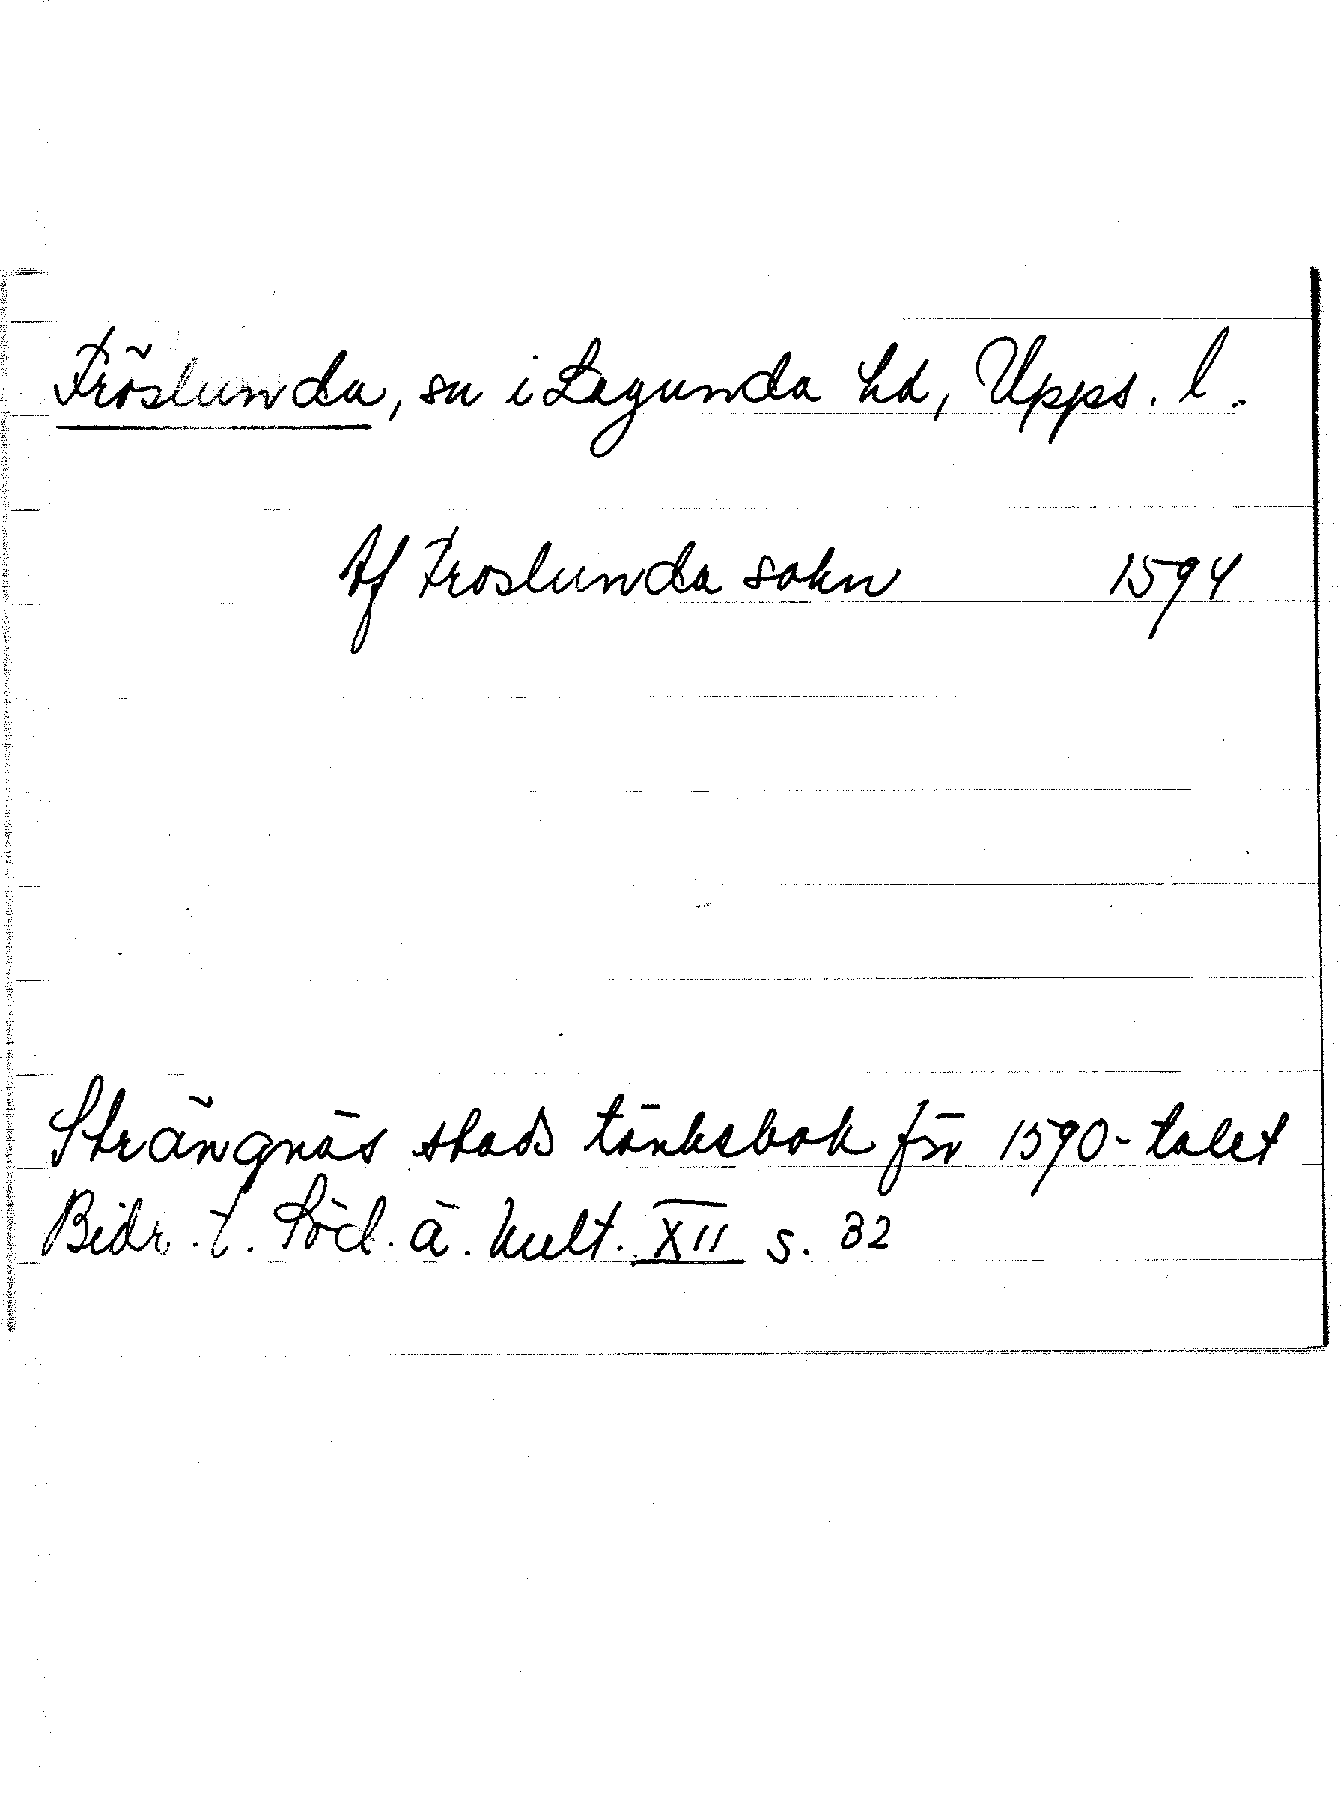 Fröslunda, sn i Lagunda hd, Upps. l.
Af Froslunda sokn 1594
Strängnäs stads tänkebok för 1590-talet
Bidr. t. Söd. ä. kult. XII s. 32